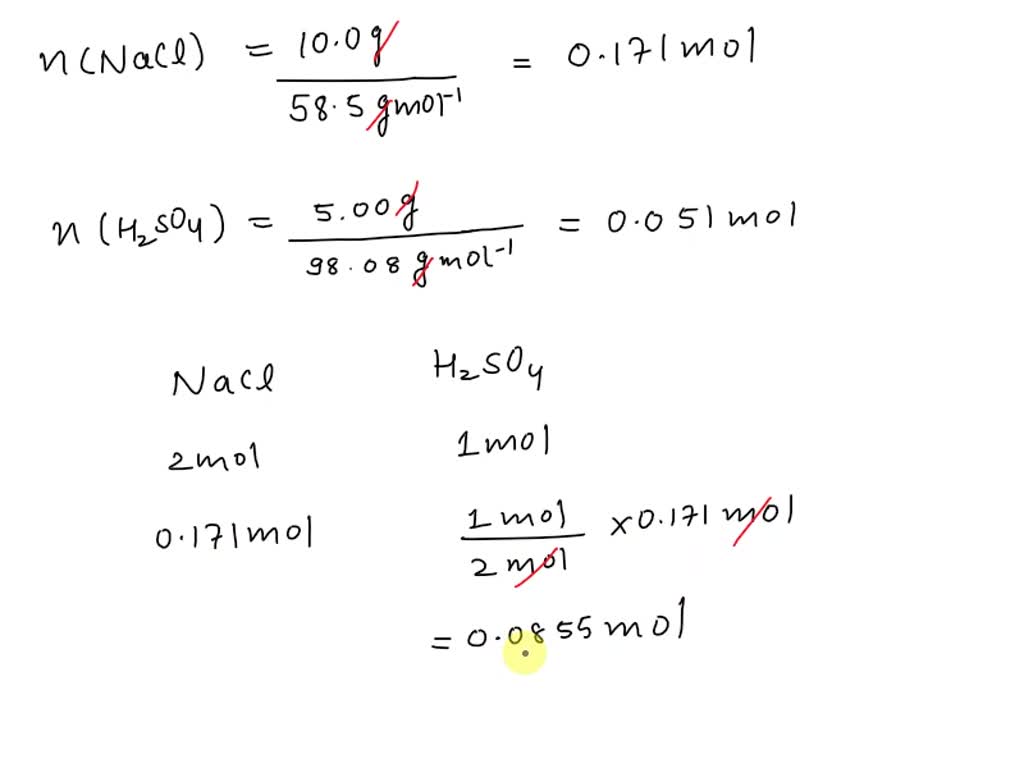 n(NaCl) = 10.0g / 58.5 gmol⁻¹ = 0.171 mol
n(H₂SO₄) = 5.00g / 98.08 gmol⁻¹ = 0.051 mol
NaCl H₂SO₄
2mol 1mol
0.171mol 1mol / 2mol × 0.171 mol
= 0.0855 mol